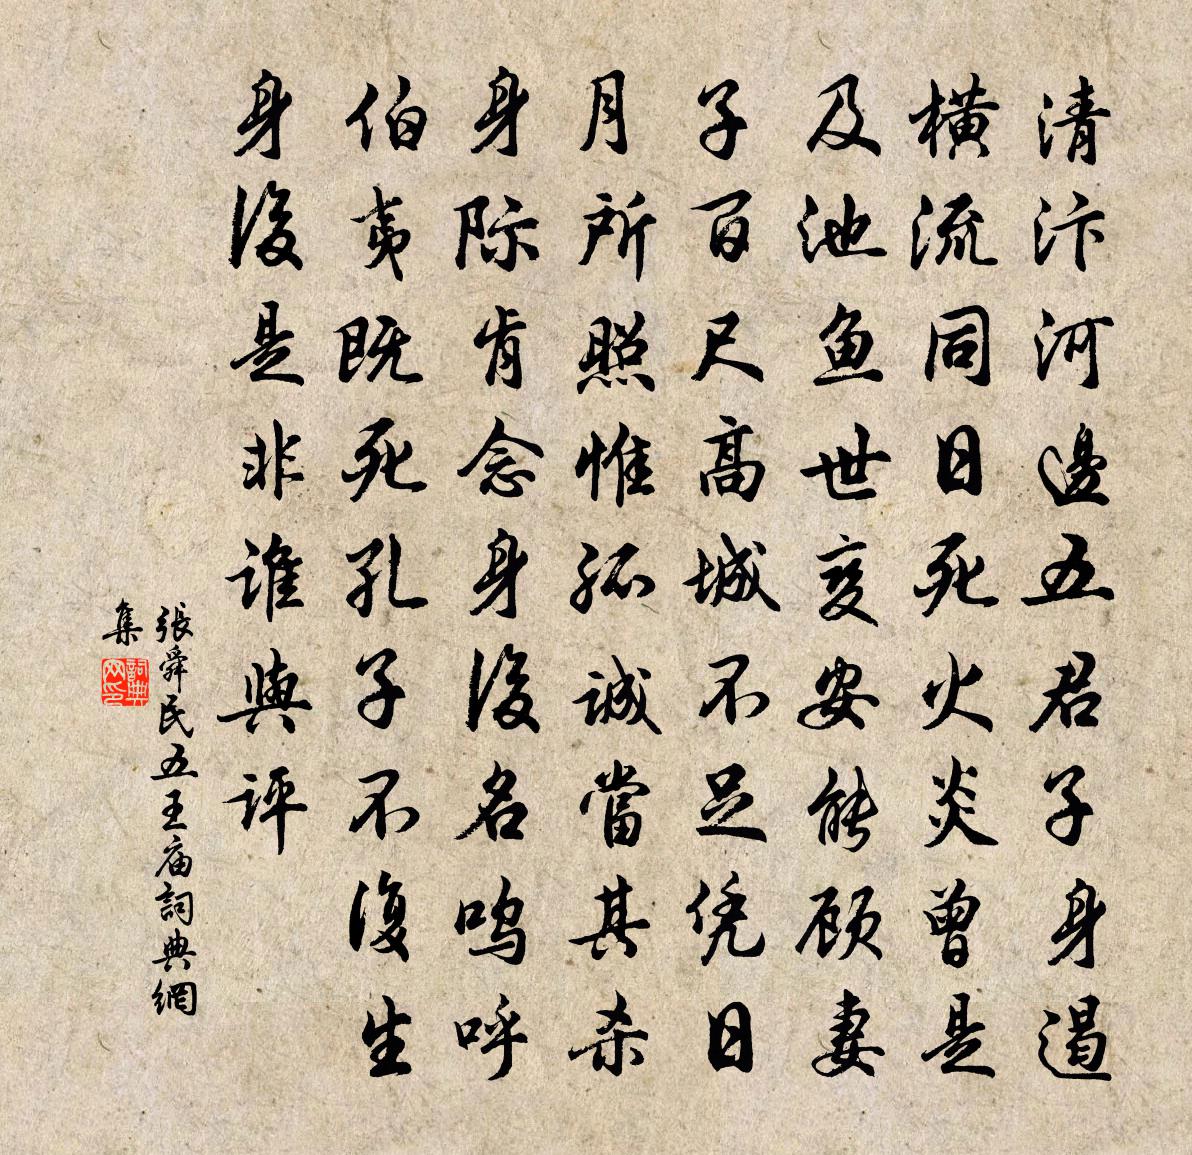 清汴河邊五君子身遏
橫流同日死火炎曾是
及池鱼世变安能顾妻
子百尺高城不足凭日
月所照惟孤诚當其杀
身际肯念身後名鸣呼
伯夷既死孔子不復生
身後是非谁與评
張舜民五王庙詞典網
集
詞典
网印